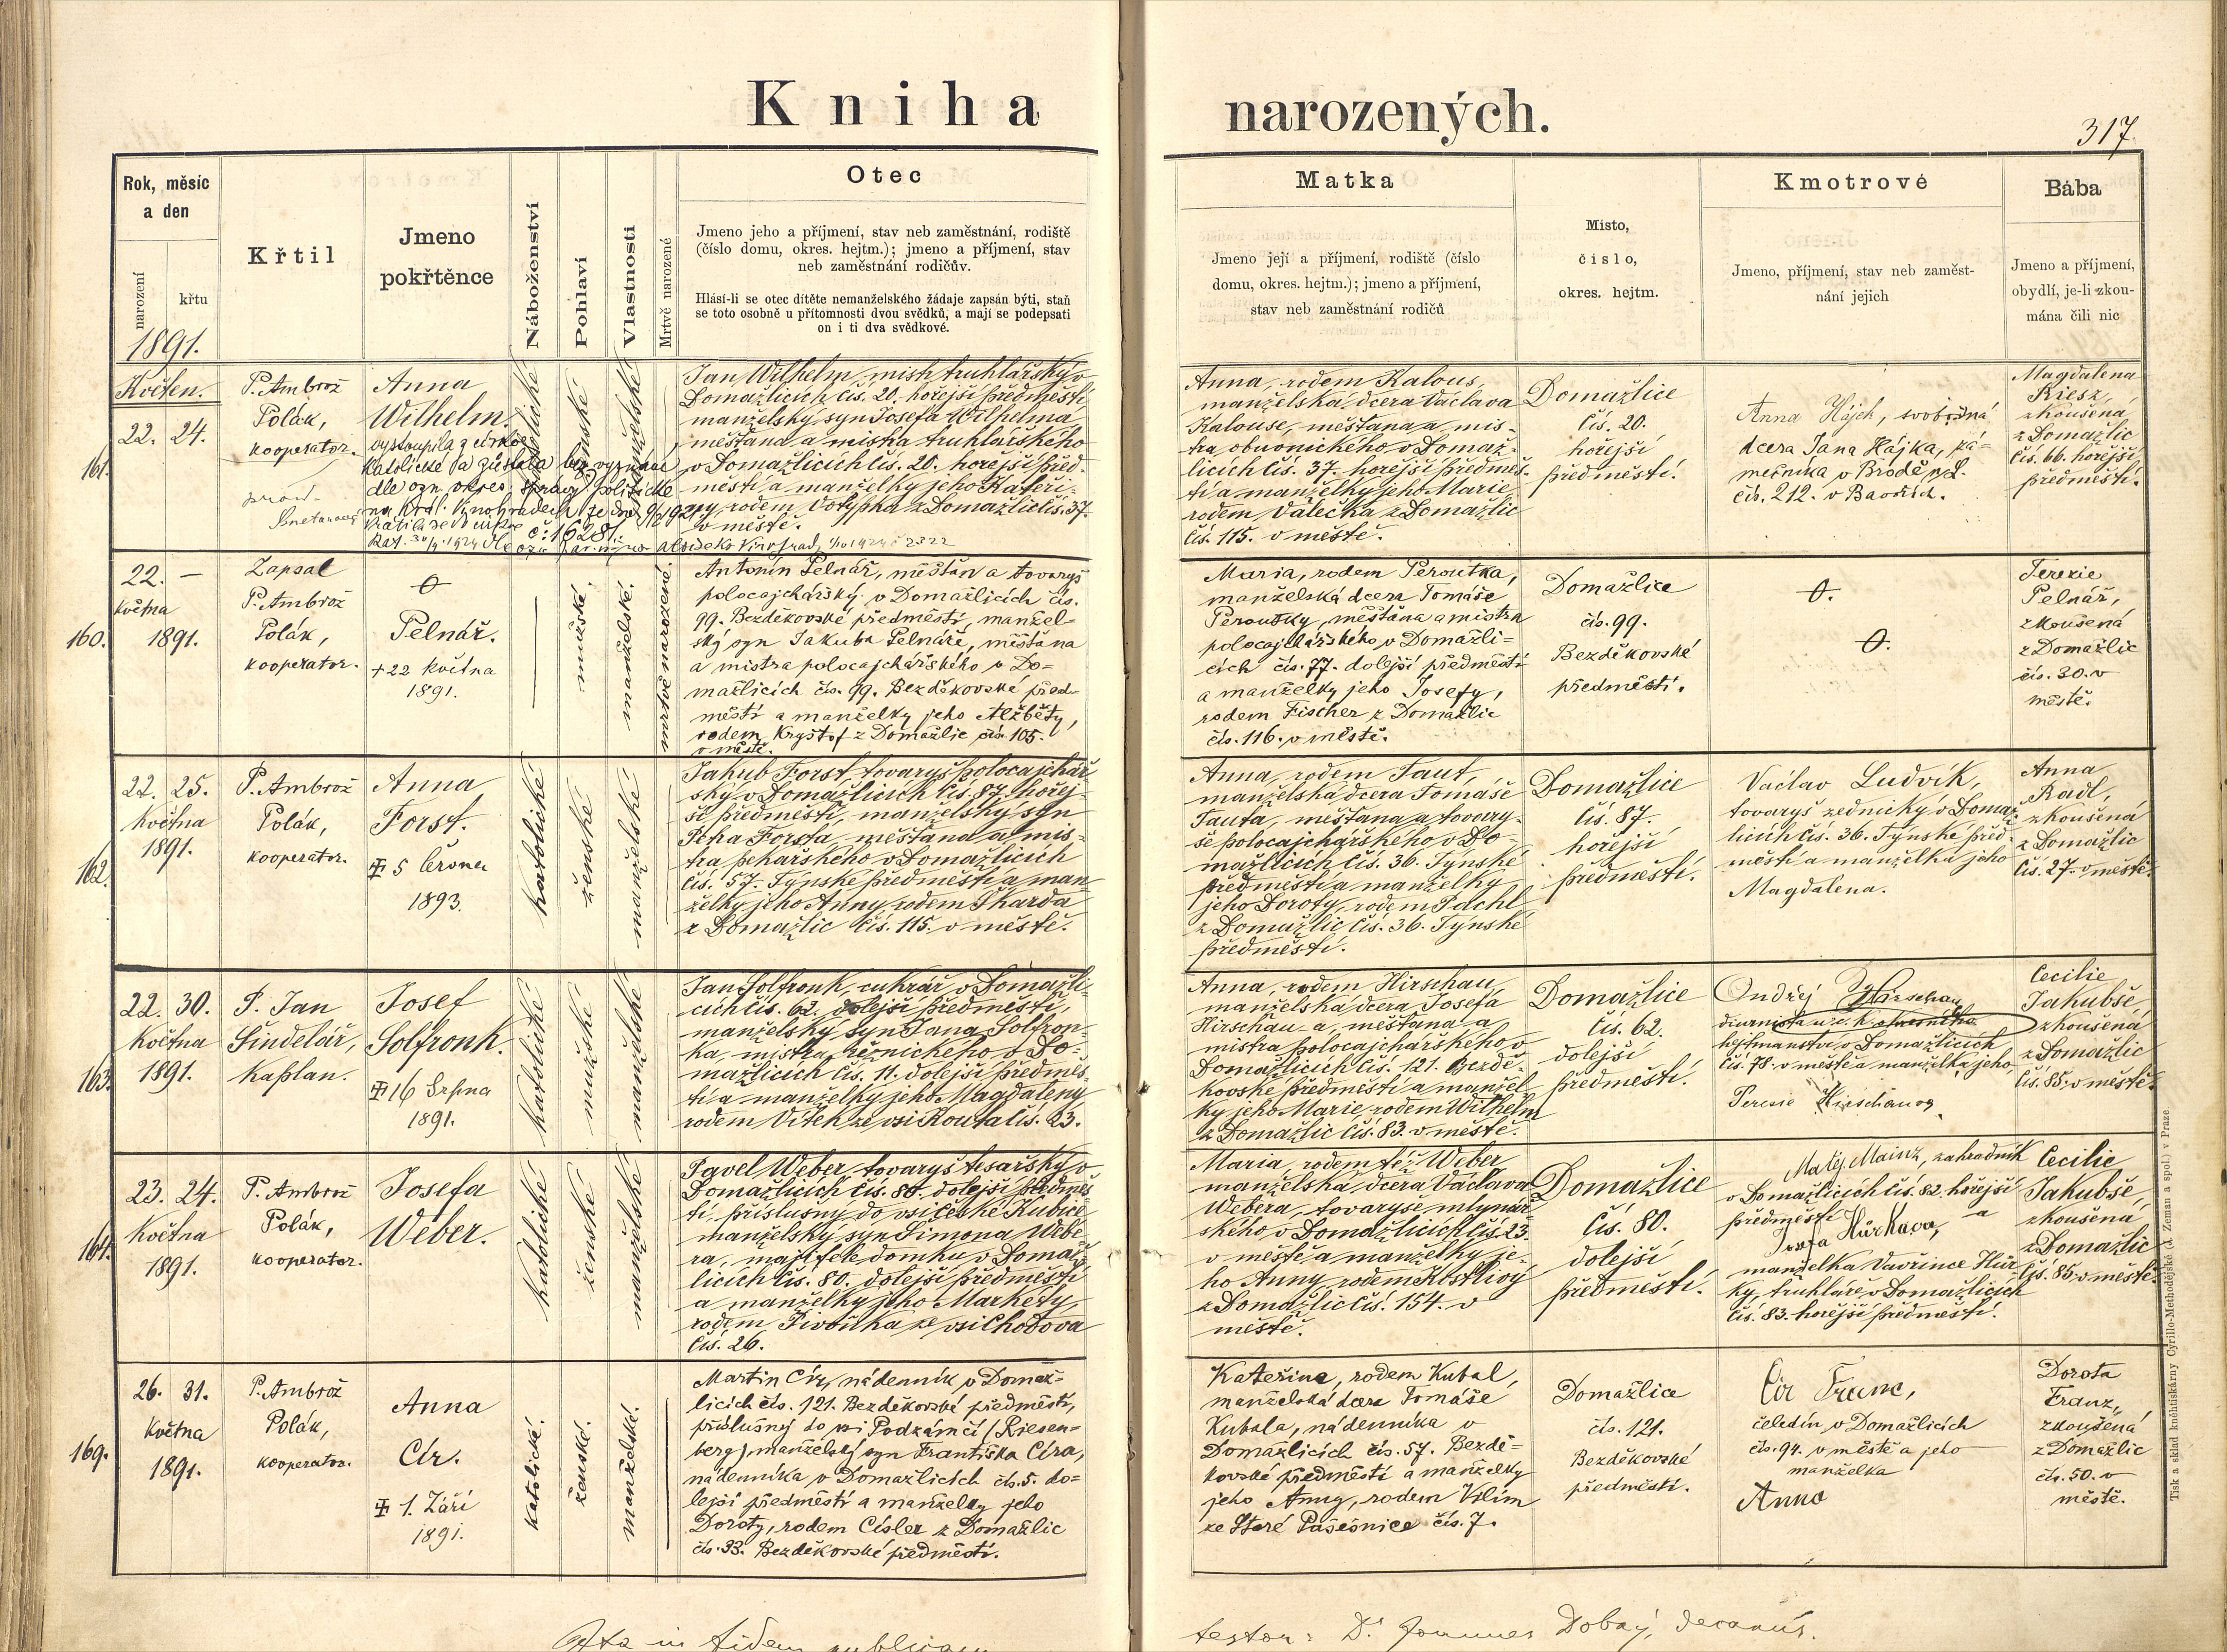 Kniha narozených.
317.
Rok, měsíc
a den
narození
křtu
1891.
Křtil
Jmeno
pokřtěnce
Náboženství
Pohlaví
Vlastnosti
Mrtvě narozené
Otec
Jmeno jeho a příjmení, stav neb zaměstnání, rodiště
(číslo domu, okres. hejtm.); jmeno a příjmení, stav
neb zaměstnání rodičův.
Hlásí-li se otec dítěte nemanželského žádaje zapsán býti, staň
se toto osobně u přítomnosti dvou svědků, a mají se podepsati
on i ti dva svědkové.
Matka
Jmeno její a příjmení, rodiště (číslo
domu, okres. hejtm.); jmeno a příjmení,
stav neb zaměstnání rodičů
Misto,
číslo,
okres. hejtm.
Kmotrové
Jmeno, příjmení, stav neb zaměst-
nání jejich
Bába
Jmeno a příjmení,
obydlí, je-li zkou-
mána čili nic
161.
Květen.
22. 24.
P. Ambrož
Polák,
kooperator.
Anna
Wilhelm.
vystoupila z církve
katolické a zůstala bez vyznání
dle ozn. okres. správy politické
na Král. Vinohradech ze dne
č: 16281.
katolické
ženské
manželské
Jan Wilhelm, mistr truhlářský v
Domažlicích čís. 20. hořejší předměstí
manželský syn Josefa Wilhelma
měšťana a mistra truhlářského
v Domažlicích čís. 20. hořejší před-
městí a manželky jeho Kateři-
ny, rodem Votypka z Domažlic čís. 37.
v městě.
Anna, rodem Kalous,
manželská dcera Václava
Kalouse, měšťana a mis-
tra obuvnického v Domaž-
licích čís. 37. hořejší předměs-
tí a manželky jeho Marie
rodem Valečka z Domažlic
čís. 115. v městě.
Domažlice
čís. 20.
hořejší
předměstí.
Anna Hájek, svobodná
dcera Jana Hájka, ká-
meníka v Brodě n/L.
čís. 212. v Bavořích.
Magdalena
Riesz,
zkoušená
z Domažlic
čís. 66. hořejší
předměstí.
160.
22. —
Května
1891.
Zapsal
P. Ambrož
Polák,
kooperator.
0
Pelnář.
+22 května
1891.
mužské.
manželské.
mrtvě narozené.
Antonín Pelnář, měšťan a tovaryš
polocajchářský v Domažlicích čís.
99. Bezděkovské předměstí, manžel-
ský syn Jakuba Pelnáře, měšťana
a mistra polocajchářského v Do-
mažlicích čís. 99. Bezděkovské před-
městí a manželky jeho Alžběty,
rodem Kryštof z Domažlic čís. 105.
v městě.
Maria, rodem Peroutka,
manželská dcera Tomáše
Peroutky, měšťana a mistra
polocajchářského v Domažli-
cích čís. 77. dolejší předměstí
a manželky jeho Josefy,
rodem Fischer z Domažlic
čís. 116. v městě.
Domažlice
čís. 99.
Bezděkovské
předměstí.
0.
0.
Terezie
Pelnář,
zkoušená
z Domažlic
čís. 30. v
městě.
162.
22. 25.
Května
1891.
P. Ambrož
Polák,
kooperator.
Anna
Forst.
5 června
1893.
katolické
ženské
manželské
Jakub Forst, tovaryš polocajchář-
ský v Domažlicích čís. 87. hořej-
ší předměstí, manželský syn
Petra Forsta, měšťana a mis-
tra pekařského v Domažlicích
čís. 57. Týnské předměstí a man-
želky jeho Anny, rodem Škarda
z Domažlic čís. 115. v městě.
Anna, rodem Taut,
manželská dcera Tomáše
Tauta, měšťana a tovary-
še polocajchářského v Do-
mažlicích čís. 36. Týnské
předměstí a manželky
jeho Doroty, rodem Pachl
z Domažlic čís. 36. Týnské
předměstí.
Domažlice
čís. 87.
hořejší
předměstí.
Václav Ludvík,
tovaryš zednický v Domaž-
licích čís. 36. Týnské před-
městí a manželka jeho
Magdalena.
Anna
Radl,
zkoušená
z Domažlic
čís. 27. v městě.
163.
22. 30.
Května
1891.
P. Jan
Šindelář,
kaplan.
Josef
Solfronk.
16 Srpna
1891.
katolické
mužské
manželské
Jan Solfronk, cukrář v Domažli-
cích čís. 62. dolejší předměstí,
manželský syn Jana Solfron-
ka, mistra řeznického v Do-
mažlicích čís. 11. dolejší předměs-
tí a manželky jeho Magdaleny
rodem Vítek ze vsi Kouta čís. 23.
Anna, rodem Hirschau
manželská dcera Josefa
Hirschau-a, měšťana a
mistra polocajchářského v
Domažlicích čís. 121. Bezdě-
kovské předměstí a manžel-
ky jeho Marie rodem Wilhelm
z Domažlic čís. 83. v městě.
Domažlice
čís. 62.
dolejší
předměstí.
Ondřej Hirschau
diurnista u c. k.
hejtmanství v Domažlicích
čís. 78. v městě a manželka jeho,
Terezie Hirschauova
Cecilie
Jakubše
zkoušená
z Domažlic
čís. 85. v městě.
164.
23. 24.
Května
1891.
P. Ambrož
Polák,
kooperator.
Josefa
Weber.
katolické
ženské
manželské
Pavel Weber, tovaryš tesařský v
Domažlicích čís. 80. dolejší předměs-
tí, příslušný do vsi České Kubice
manželský syn Šimona Webe-
ra, majitele domku v Domaž-
licích čís. 80. dolejší předměstí
a manželky jeho Markéty,
rodem Pivoňka ze vsi Chodova
čís. 26.
Maria, rodem též Weber
manželská dcera Václava
Webera, tovaryše mlynář-
ského v Domažlicích čís. 23.
v městě a manželky je-
ho Anny rodem Kostlivý
z Domažlic čís. 154. v
městě.
Domažlice
čís. 80.
dolejší
předměstí.
Matěj Mainz, zahradník
v Domažlicích čís. 82. hořejší
předměstí a
Josefa Hůrkova,
manželka Vavřince Hůr-
ky, truhláře v Domažlicích
čís. 83. hořejší předměstí.
Cecilie
Jakubše,
zkoušená
z Domažlic
čís. 85. v městě.
169.
26. 31.
Května
1891.
P. Ambrož
Polák,
kooperator.
Anna
Cír.
1. Září
1891.
katolické.
ženské.
manželské.
Martin Cír, nádenník v Domaž-
licích čís. 121. Bezděkovské předměstí,
příslušný do vsi Podzámčí (Riesen-
berg) manželský syn Františka Círa,
nádenníka v Domažlicích čís. 5. do-
lejší předměstí a manželky jeho
Doroty, rodem Císler z Domažlic
čís. 33. Bezděkovské předměstí.
Kateřina, rodem Kubal,
manželská dcera Tomáše
Kubala, nádenníka v
Domažlicích čís. 57. Bezdě-
kovské předměstí a manželky
jeho Anny, rodem Vilím
ze Staré Pašešnice čís. 7.
Domažlice
čís. 121.
Bezděkovské
předměstí.
Cír Franc,
čeledín v Domažlicích
čís. 94. v městě a jeho
manželka
Anna
Dorota
Franz,
zkoušená
z Domažlic
čís. 50. v
městě.
Tisk a sklad kněhtiskárny Cyrillo-Methodějské (J. Zeman a spol.) v Praze
in fidem publicam
testor: Dr. Joannes Dobrý, decanus.